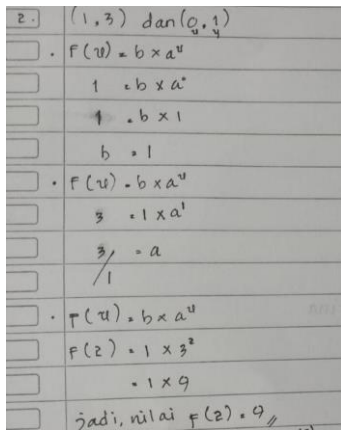 2. (1,3) dan (0,1)
x y
. F(x) = b × a^x
1 = b × a°
1 = b × 1
b = 1
. F(x) = b × a^x
3 = 1 × a¹
3/1 = a
. F(x) = b × a^x
F(2) = 1 × 3²
= 1 × 9
jadi, nilai F(2) = 9 //